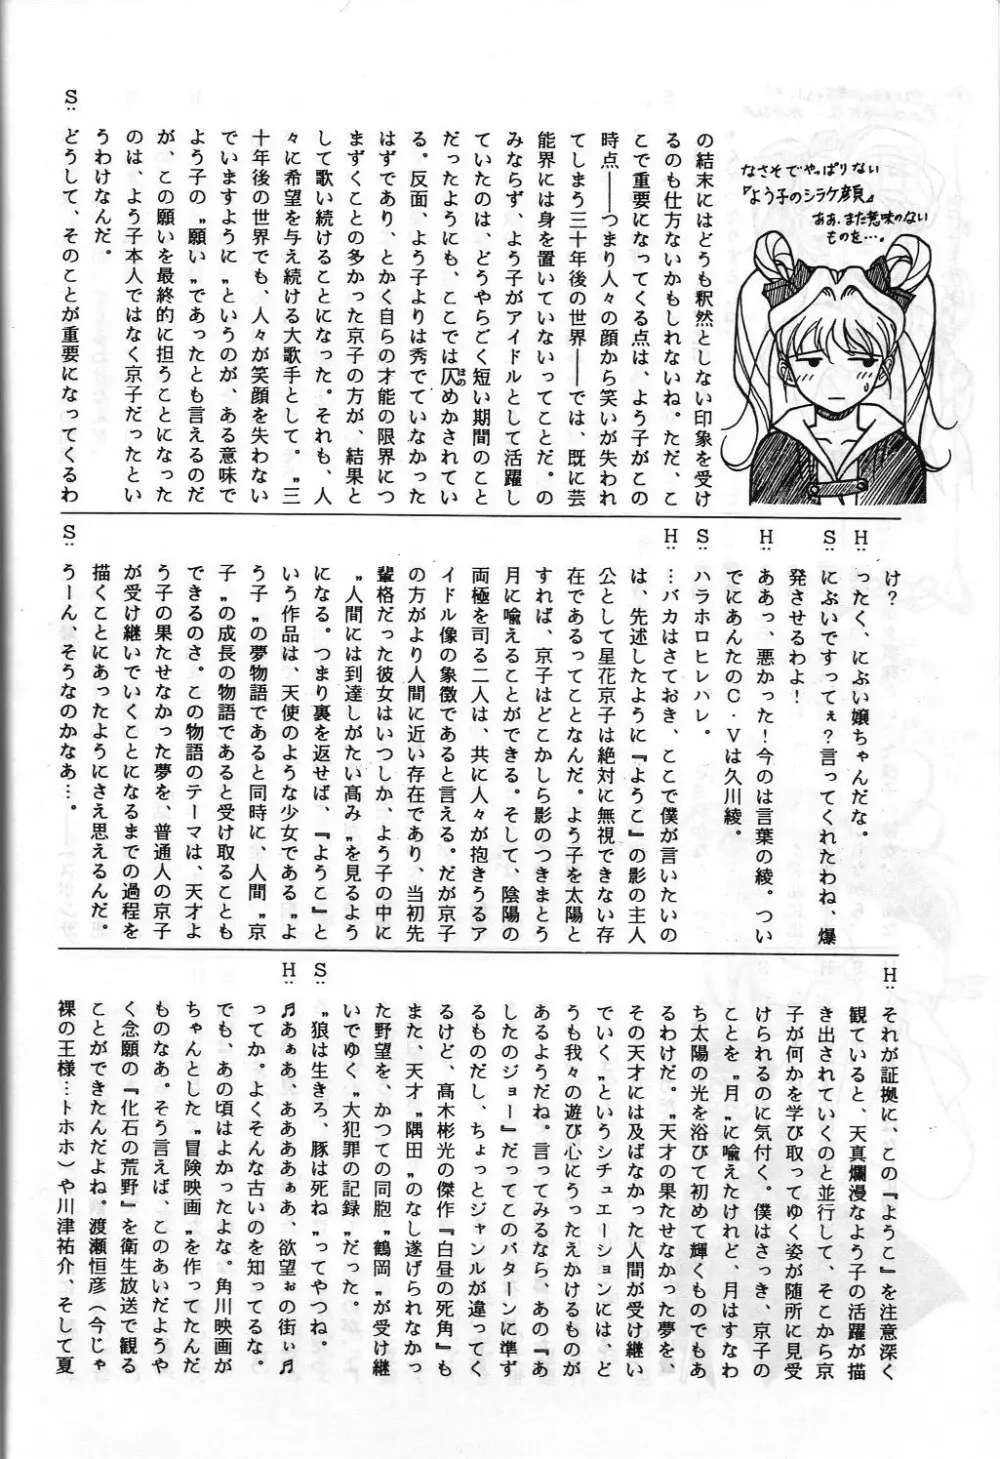 なさそでやっぱりない
『よう子のシラケ顔』
ああ、また意味のない
ものを…。
の結末にはどうも釈然としない印象を受け
るのも仕方ないかもしれないね。ただ、こ
こで重要になってくる点は、よう子がこの
時点――つまり人々の顔から笑いが失われ
てしまう三十年後の世界――では、既に芸
能界には身を置いていないってことだ。の
みならず、よう子がアイドルとして活躍し
ていたのは、どうやらごく短い期間のこと
だったようにも、ここでは仄めかされてい
る。反面、よう子よりは秀でていなかった
はずであり、とかく自らの才能の限界につ
まずくことの多かった京子の方が、結果と
して歌い続けることになった。それも、人
々に希望を与え続ける大歌手として。〝三
十年後の世界でも、人々が笑顔を失わない
でいますように〟というのが、ある意味で
よう子の〝願い〟であったとも言えるのだ
が、この願いを最終的に担うことになった
のは、よう子本人ではなく京子だったとい
うわけなんだ。
S:どうして、そのことが重要になってくるわ
け?
H:ったく、にぶい嬢ちゃんだな。
S:にぶいですってぇ?言ってくれたわね、爆
発させるわよ!
H:ああっ、悪かった!今のは言葉の綾。つい
でにあんたのC・Vは久川綾。
S:ハラホロヒレハレ。
H:…バカはさておき、ここで僕が言いたいの
は、先述したように『ようこ』の影の主人
公として星花京子は絶対に無視できない存
在であるってことなんだ。よう子を太陽と
すれば、京子はどこかしら影のつきまとう
月に喩えることができる。そして、陰陽の
両極を司る二人は、共に人々が抱きうるア
イドル像の象徴であると言える。だが京子
の方がより人間に近い存在であり、当初先
輩格だった彼女はいつしか、よう子の中に
〝人間には到達しがたい高み〟を見るよう
になる。つまり裏を返せば、『ようこ』と
いう作品は、天使のような少女である〝よ
う子〟の夢物語であると同時に、人間〝京
子〟の成長の物語であると受け取ることも
できるのさ。この物語のテーマは、天才よ
う子の果たせなかった夢を、普通人の京子
が受け継いでいくことになるまでの過程を
描くことにあったようにさえ思えるんだ。
S:うーん、そうなのかなあ…。
H:それが証拠に、この『ようこ』を注意深く
観ていると、天真爛漫なよう子の活躍が描
き出されていくのと並行して、そこから京
子が何かを学び取ってゆく姿が随所に見受
けられるのに気付く。僕はさっき、京子の
ことを〝月〟に喩えたけれど、月はすなわ
ち太陽の光を浴びて初めて輝くものでもあ
るわけだ。〝天才の果たせなかった夢を、
その天才には及ばなかった人間が受け継い
でいく〟というシチュエーションには、ど
うも我々の遊び心にうったえかけるものが
あるようだね。言ってみるなら、あの『あ
したのジョー』だってこのパターンに準ず
るものだし、ちょっとジャンルが違ってく
るけど、高木彬光の傑作『白昼の死角』も
また、天才〝隅田〟のなし遂げられなかっ
た野望を、かつての同胞〝鶴岡〟が受け継
いでゆく〝大犯罪の記録〟だった。
S:〝狼は生きろ、豚は死ね〟ってやつね。
H:♬あぁぁあ、ああああぁぁあ、欲望ぉの街ぃ♬
ってか。よくそんな古いのを知ってるな。
でも、あの頃はよかったよな。角川映画が
ちゃんとした〝冒険映画〟を作ってたんだ
ものなあ。そう言えば、このあいだようや
く念願の『化石の荒野』を衛生放送で観る
ことができたんだよね。渡瀬恒彦(今じゃ
裸の王様…トホホ)や川津祐介、そして夏